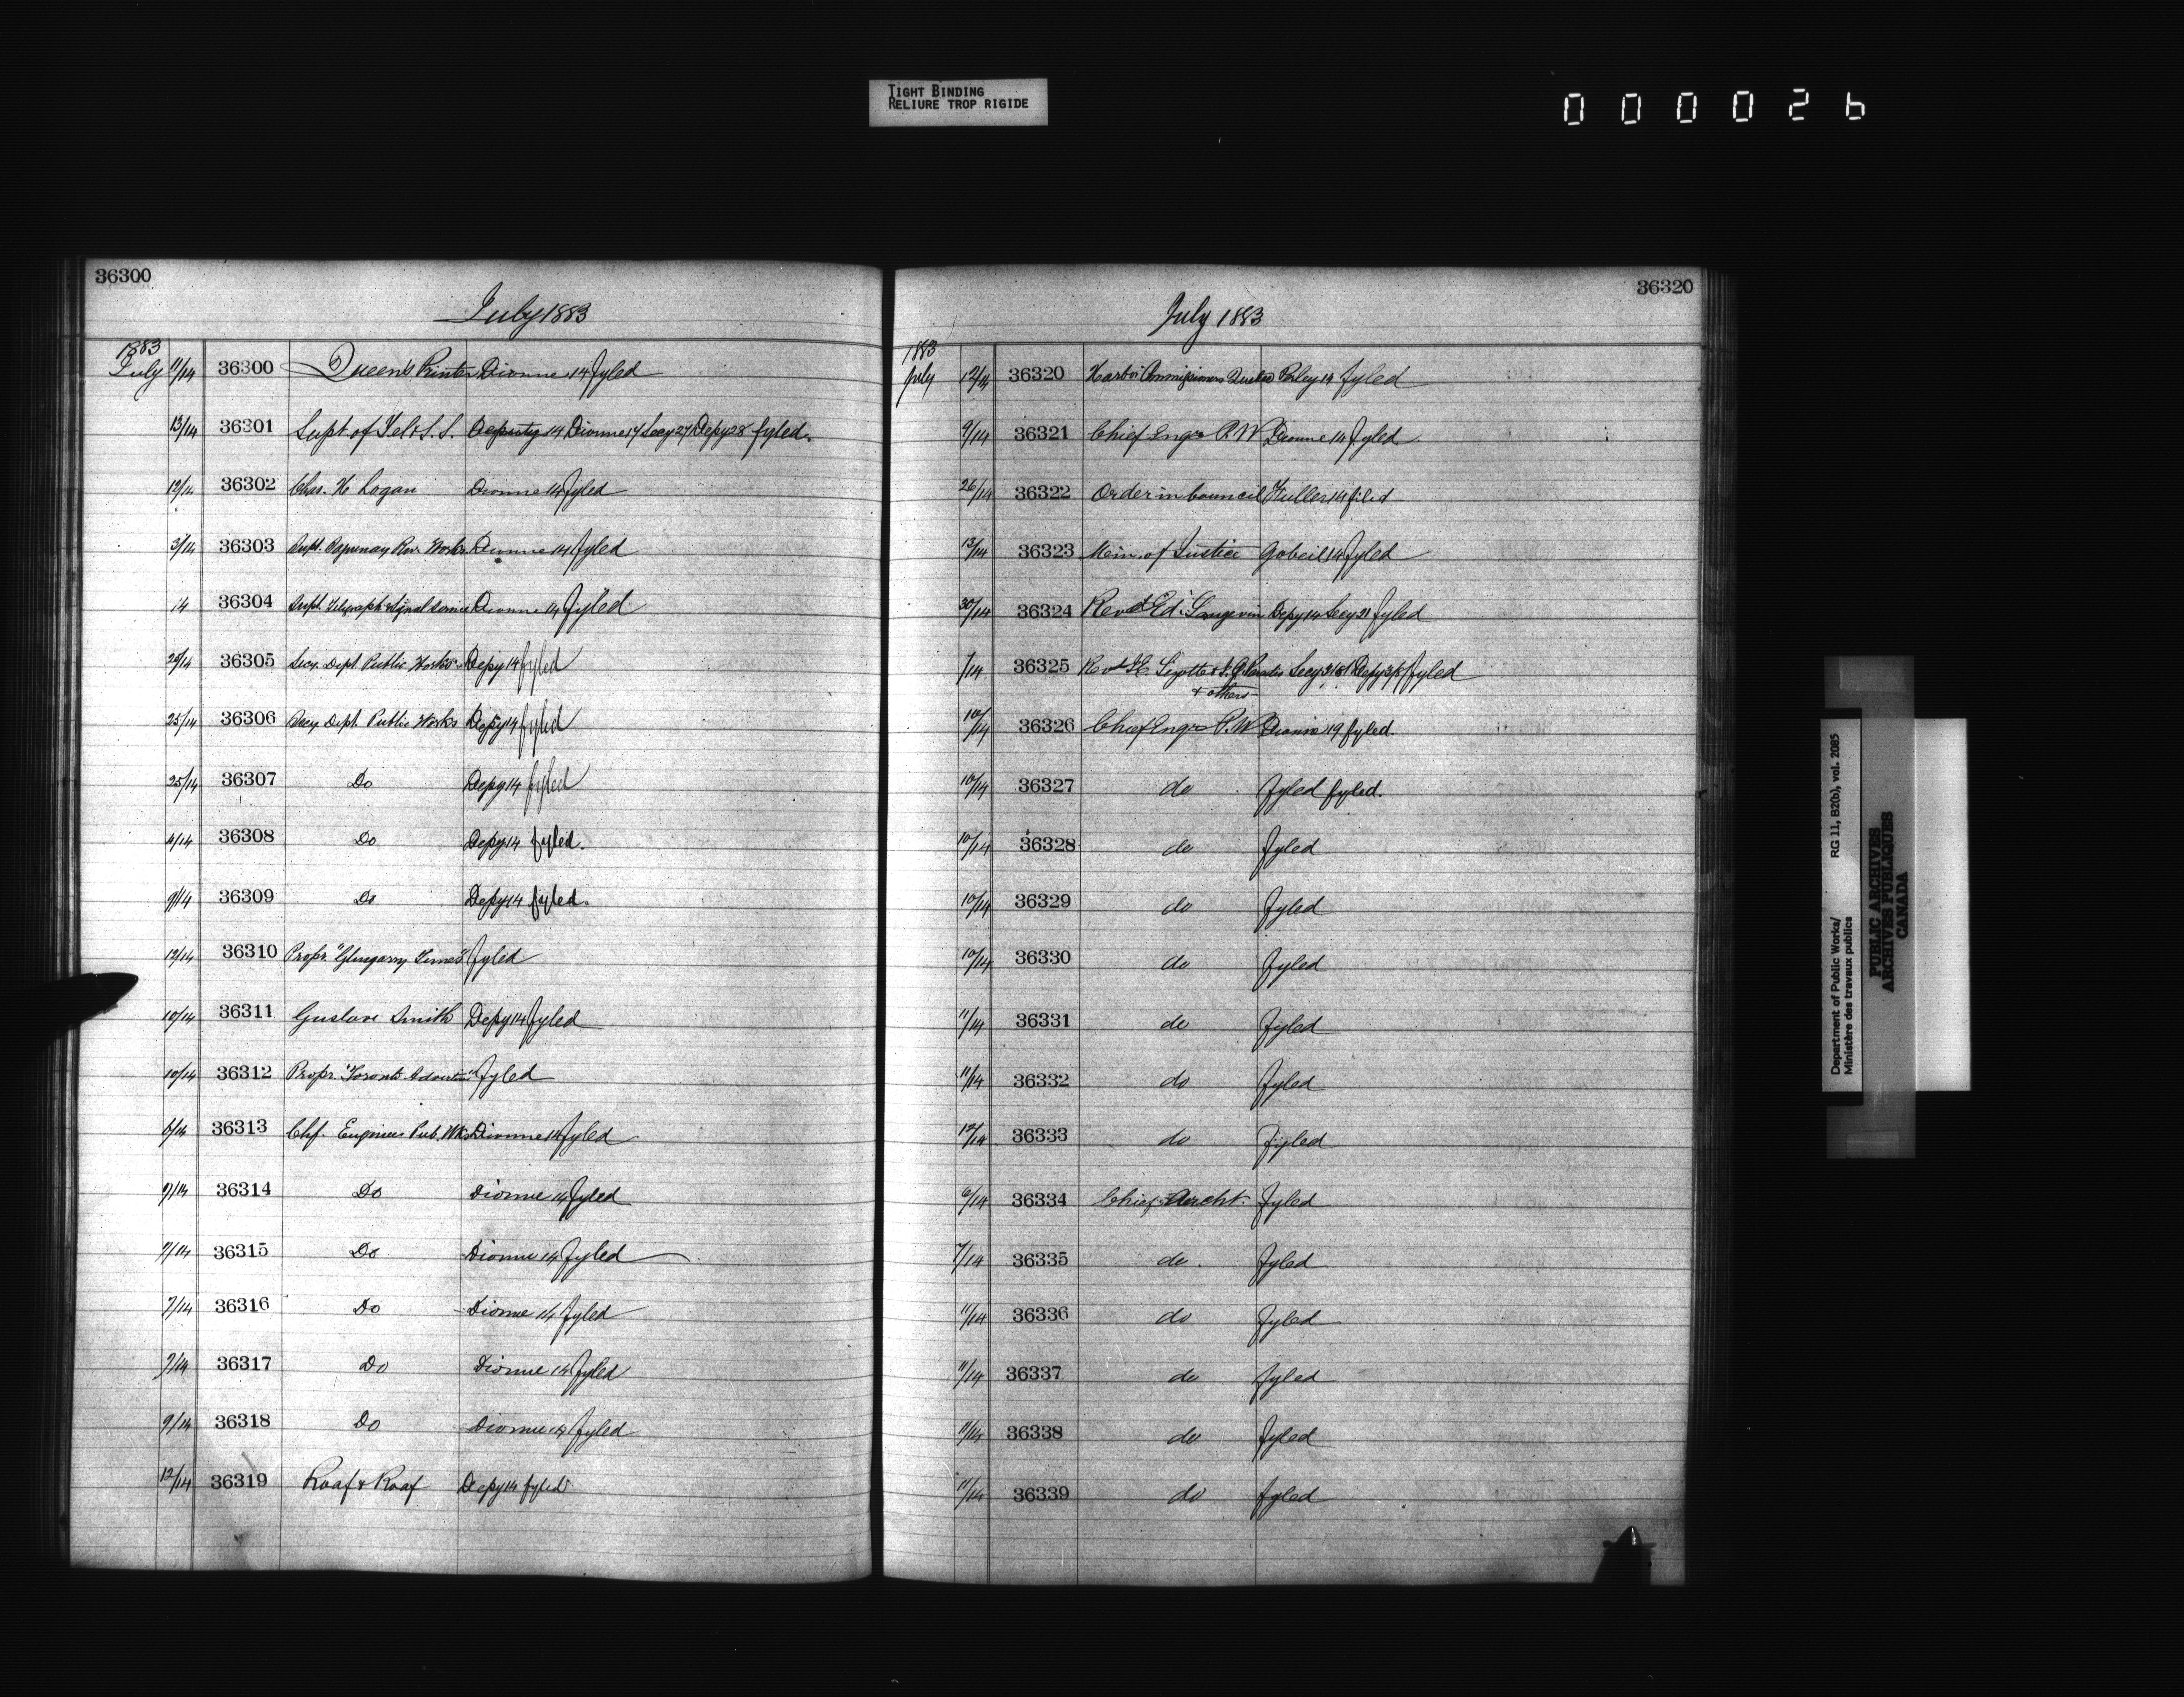 TIGHT BINDING
RELIURE TROP RIGIDE
000026
36300
July 1883
1883
July 11/14 36300 Queen's Printer Dionne 14 fyled
13/14 36301 Supt. of Tel & S. S. Deputy 14 Dionne 17 Secy 27 Depy 28 fyled.
12/14 36302 Chas. H Logan Dionne 14 fyled
3/14 36303 Supt. Saguenay River Works Dionne 14 fyled
14 36304 Supt. Telegraph & Signal Service Dionne 14 fyled
25/14 36305 Secy. Dept Public Works Depy 14 fyled
25/14 36306 Secy Dept Public Works Depy 14 fyled
25/14 36307 Do Depy 14 fyled
4/14 36308 Do Depy 14 fyled.
9/14 36309 Do Depy 14 fyled.
12/14 36310 Propr. "Glengarry Times" fyled
10/14 36311 Gustave Smith Depy 14 fyled
10/14 36312 Propr. "Toronto fyled
6/14 36313 Chf. Engineer Pub. Wks Dionne 14 fyled
9/14 36314 Do Dionne 14 fyled
7/14 36315 Do Dionne 14 fyled
7/14 36316 Do Dionne 14 fyled
7/14 36317 Do Dionne 14 fyled
9/14 36318 Do Dionne 14 fyled
12/14 36319 Roaf & Roaf Depy 14 fyled
36320
July 1883
1883
July 12/14 36320 Harbor Commissioners Quebec Perley 14 fyled
9/14 36321 Chief Engr P. W Dionne 14 fyled
26/14 36322 Order in Council Fuller 14 filed
13/14 36323 Min. of Justice Gobeil 14 fyled
30/14 36324 Revd Ed. Langevin Depy 14 Secy 21 fyled
7/14 36325 Revd & others fyled
10/14 36326 Chief Engr P. W Dionne 19 fyled.
10/14 36327 do fyled fyled.
10/14 36328 do fyled
10/14 36329 do fyled
10/14 36330 do fyled
11/14 36331 do fyled
11/14 36332 do fyled
12/14 36333 do fyled
6/14 36334 Chief Archt. fyled
7/14 36335 do. fyled
11/14 36336 do fyled
11/14 36337 do fyled
11/14 36338 do fyled
11/14 36339 do fyled
Department of Public Works/ RG 11, B2(b), vol. 2085
Ministère des travaux publics
PUBLIC ARCHIVES
ARCHIVES PUBLIQUES
CANADA